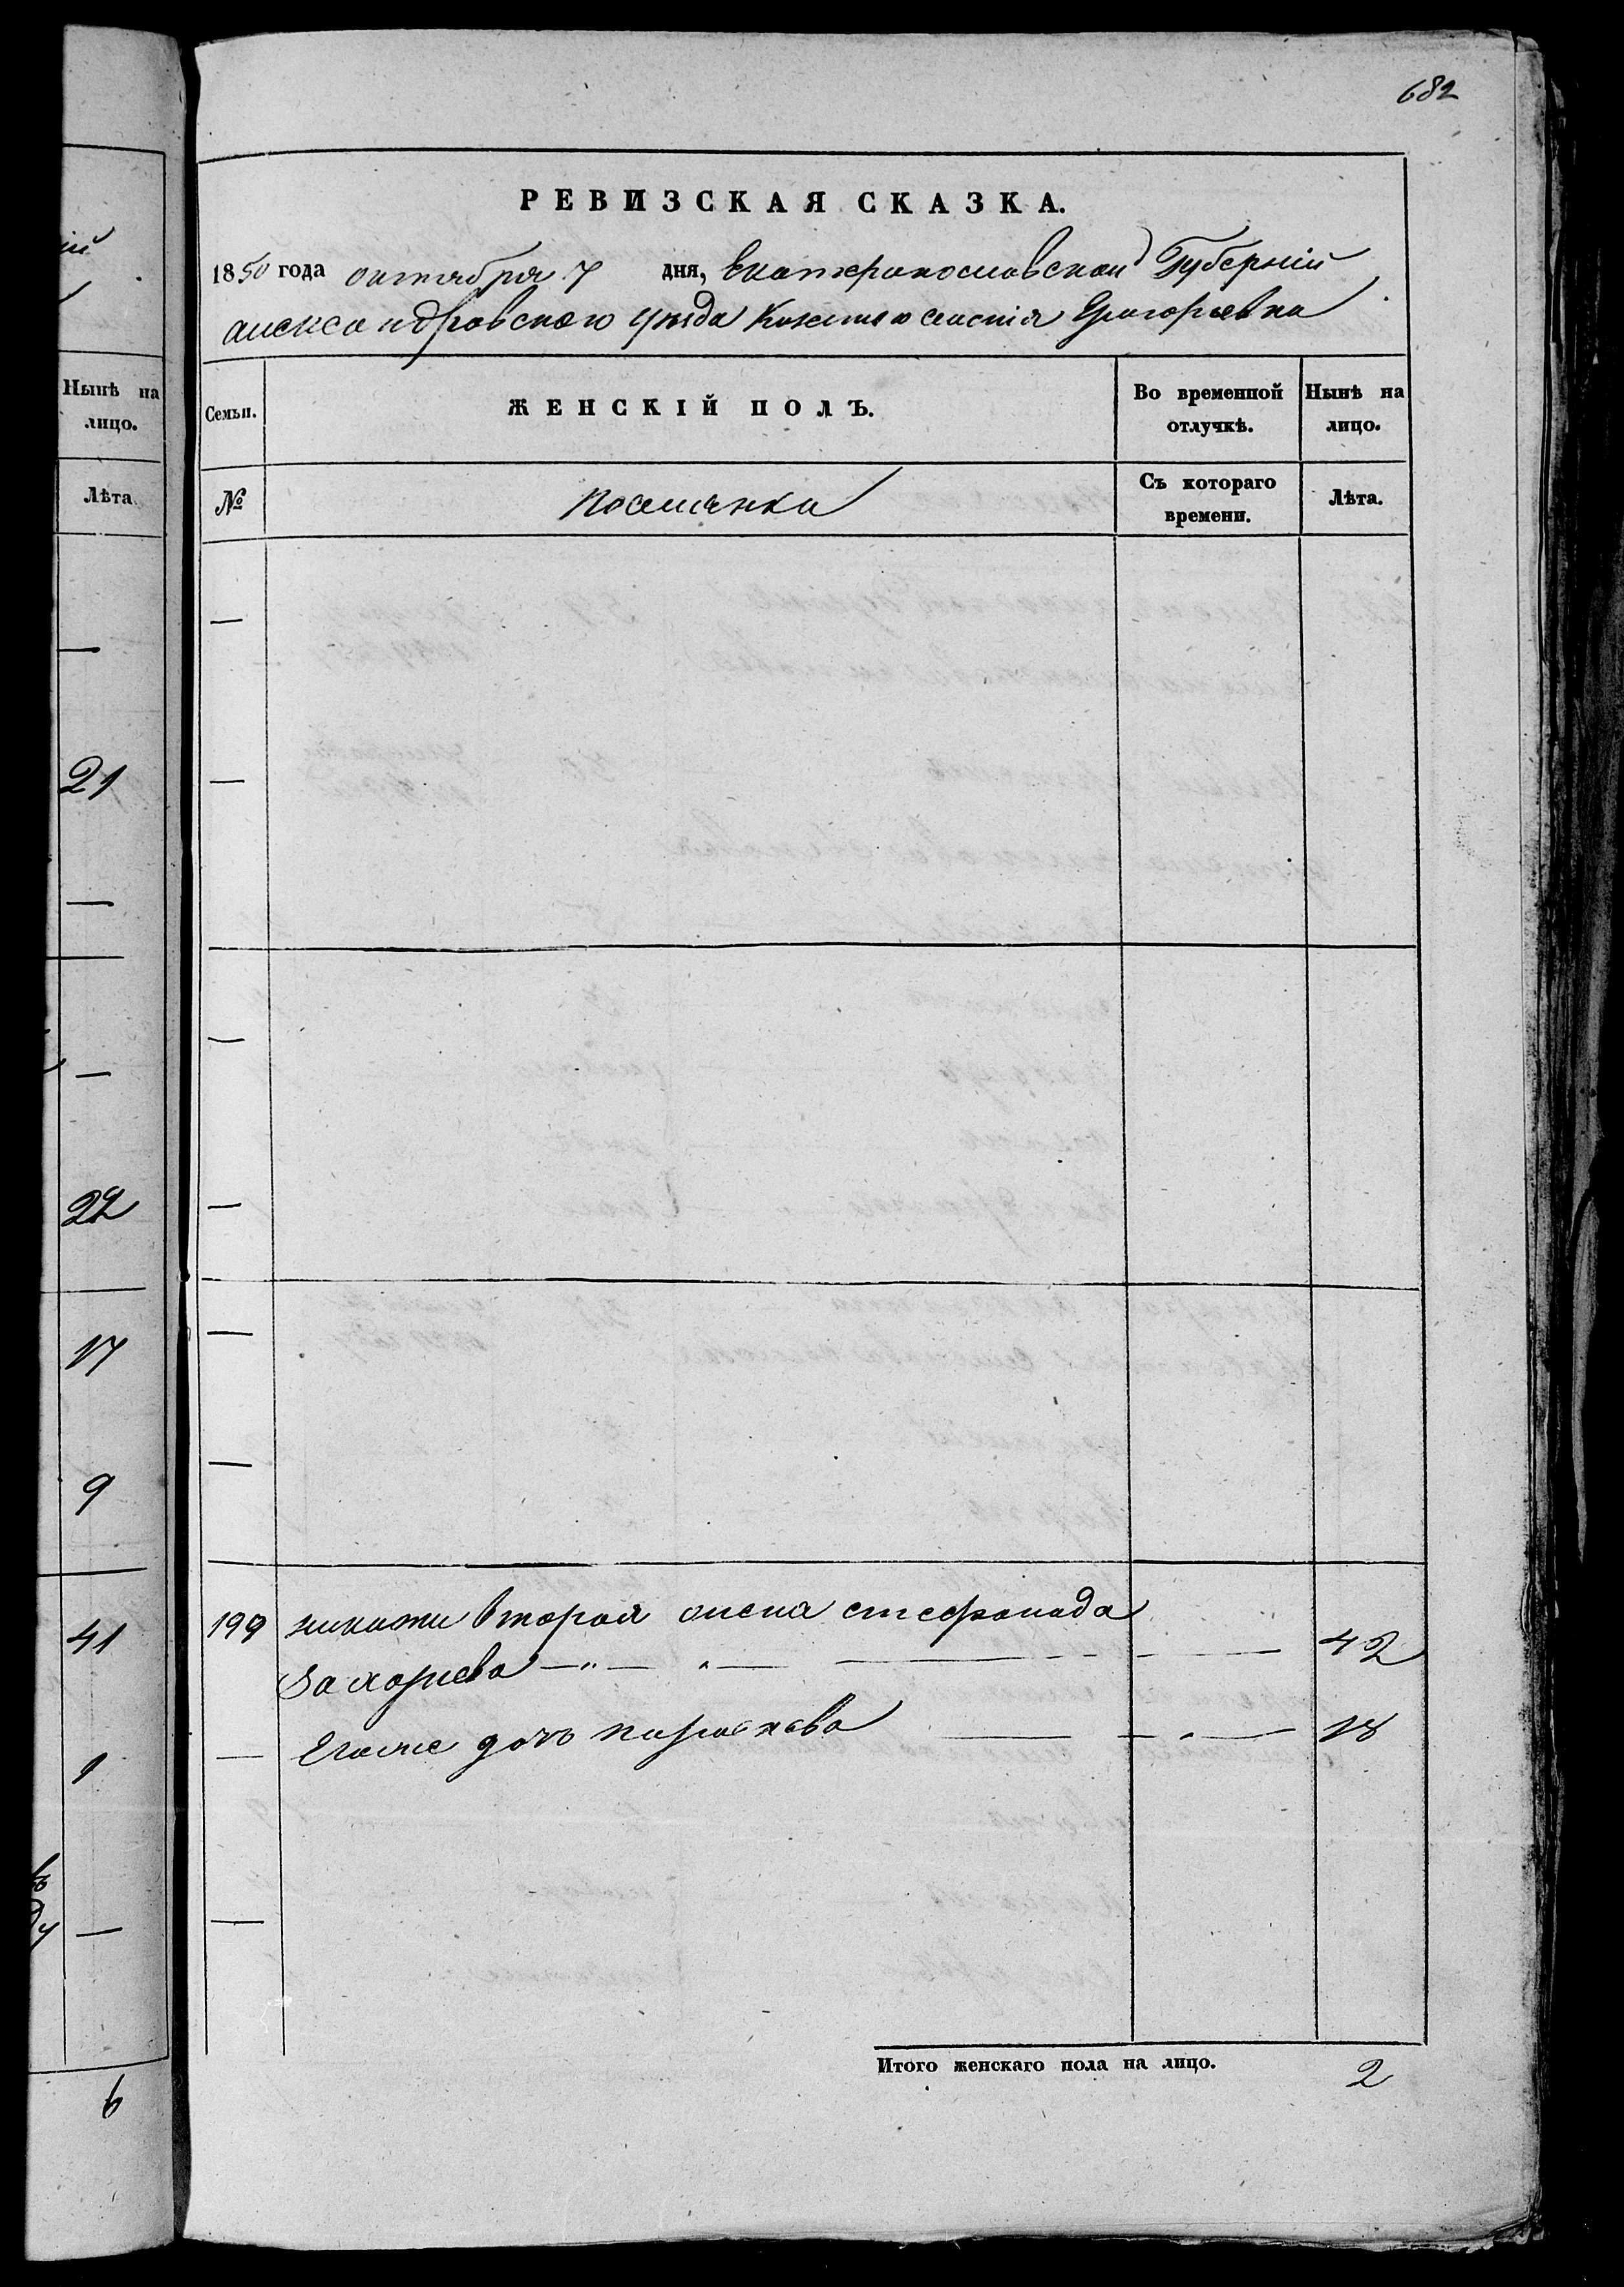 682
РЕВИЗСКАЯ СКАЗКА.
1850 года октября 7 дня, Екатеринославской Губерніи
александровского уезда Казеннаго селенія Григорьевка
Нынѣ на лицо.
Лѣта
21
22
17
9
41
1
6
Семьи.
ЖЕНСКІЙ ПОЛЪ.
Во временной отлучкѣ.
Нынѣ на лицо.
№
Поселянки
Съ котораго времени.
Лѣта.
199 никиты вторая жена стефанида
Захарьева — „ — „ — 42
— Егоже дочь — „ — 18
Итого женскаго пола на лицо. 2